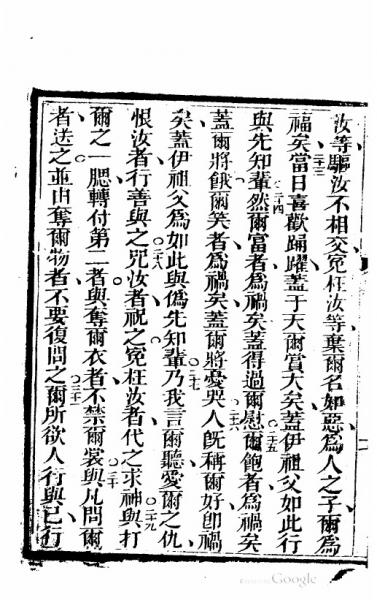 汝等驅汝不相交冤枉汝等棄爾名如惡為人之子爾為
福矣二十三當日喜歡踊躍蓋于天爾賞大矣蓋伊祖父如此行
與先知輩二十四然爾富者為禍矣蓋得過爾慰二十五爾飽者為禍矣
蓋爾將餓爾笑者為禍矣蓋爾將憂哭二十六人既稱爾好即禍
矣蓋伊祖父為如此與偽先知輩二十七乃我言爾聽愛爾之仇
恨汝者行善與之二十八咒汝者祝之冤枉汝者代之求神二十九與打
爾之一腮轉付第二者與奪爾衣者不禁爾裳三十與凡問爾
者送之並由奪爾物者不要復問之三十一爾所欲人行與己行
Google